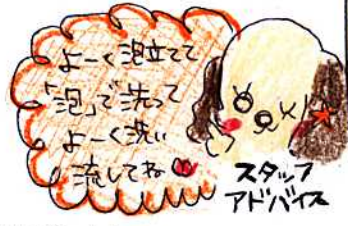 よーく泡立てて
「泡」で洗って
よーく洗い
流してね
スタッフ
アドバイス